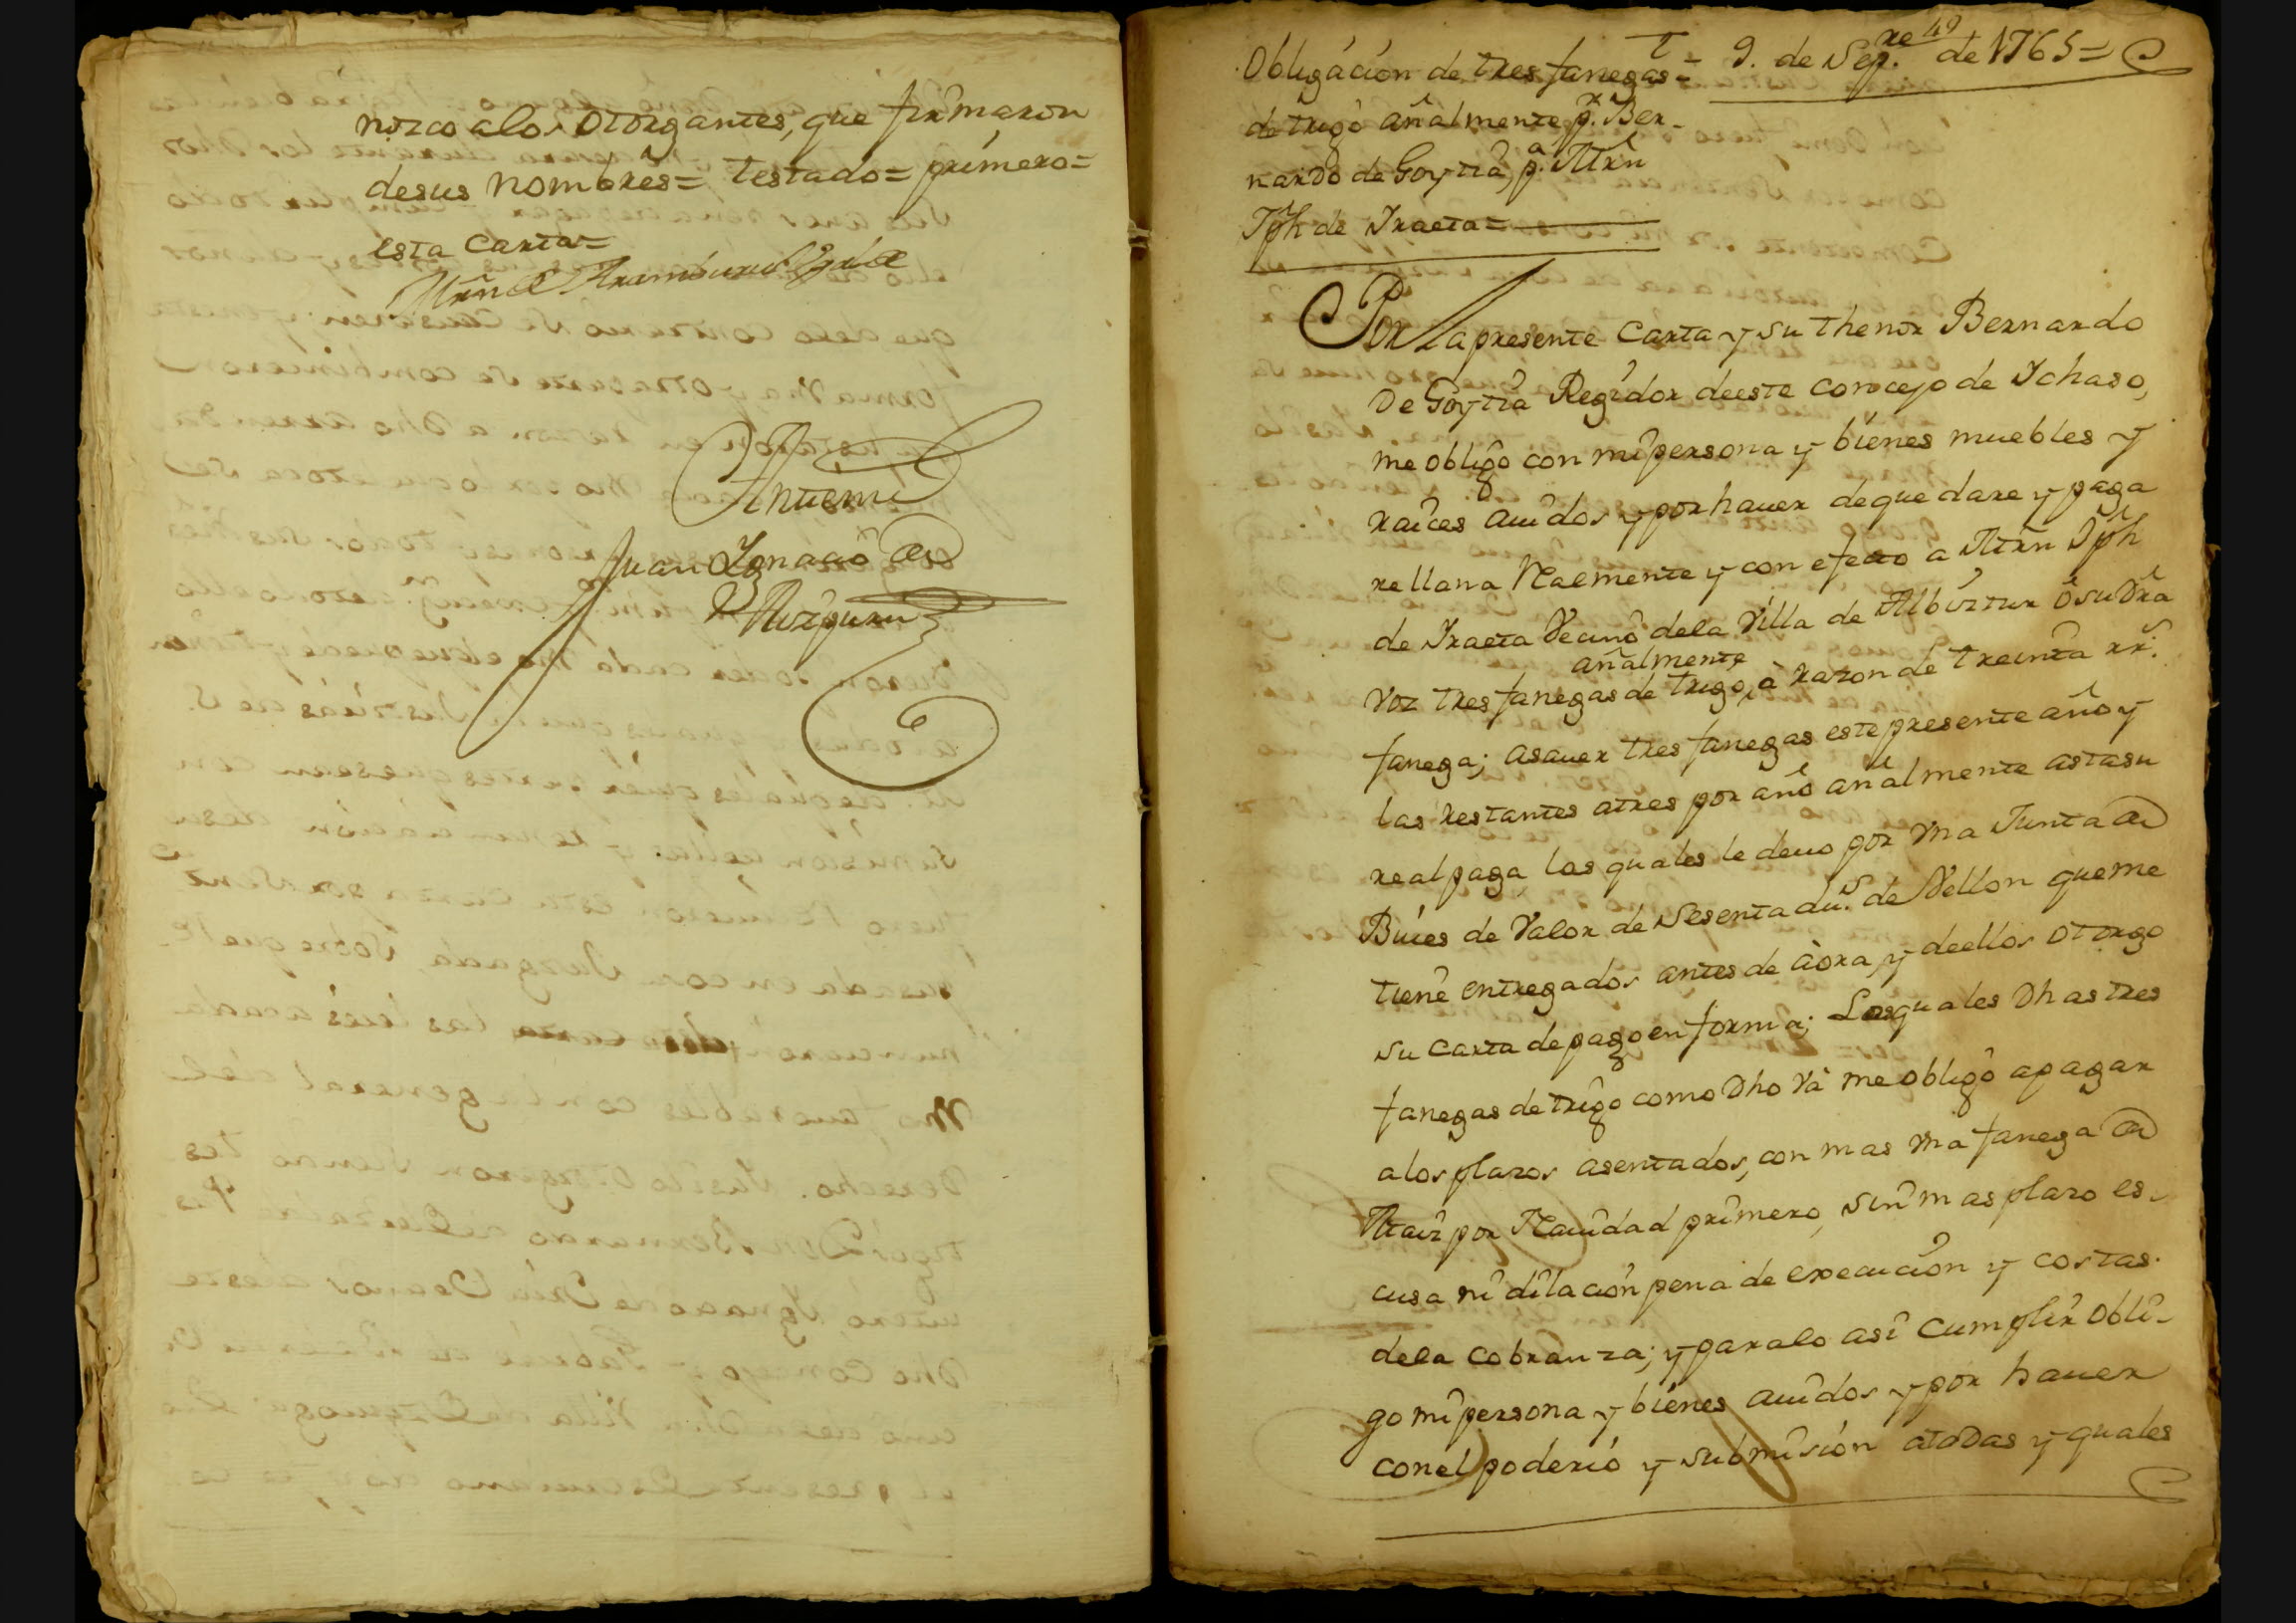 nozco alos otorgantes, que firmaron
desus nombres= testado= primero=
esta carta=
Antemi
Juan Ignacio de
Aizpuru
49
T= 9. de Sep.re de 1765=
Obligación de tres fanegas=
de trigo añalmente p.r Ber-
nardo de Goytia, p.a Mrn
Jph de Iraeta=
Por la presente Carta y su thenor Bernardo
De Goytia Regidor deeste concejo de Ichaso,
me obligo con mi persona y bienes muebles y
raices auidos y por hauer de que dare y paga
re llana Realmente y con efecto a Mrn Jph
de Iraeta Vecino dela Villa de Albiztur ô su dra
añalmente
voz tres fanegas de trigo, à razon de treinta rr.s
fanega; asauer tres fanegas este presente año y
las restantes atres por año añalmente asta su
real paga, los quales le deuo por vna Junta de
Bueies de Valor de Sesenta du.s de Vellon que me
tiene entregados antes de àora, y deellos otorgo
su carta de pago en forma; Las quales Dhas tres
fanegas de trigo como Dho và me obligo apagar
alos plazos asentados, con mas vna fanega de
Maiz por Nauidad primero, sin mas plazo es-
cusa ni dilación pena de execucion y costas.
dela cobranza; y paralo asi Cumplir obli-
go mi persona y bienes auidos y por hauer
conel poderio y submision atodas y quales